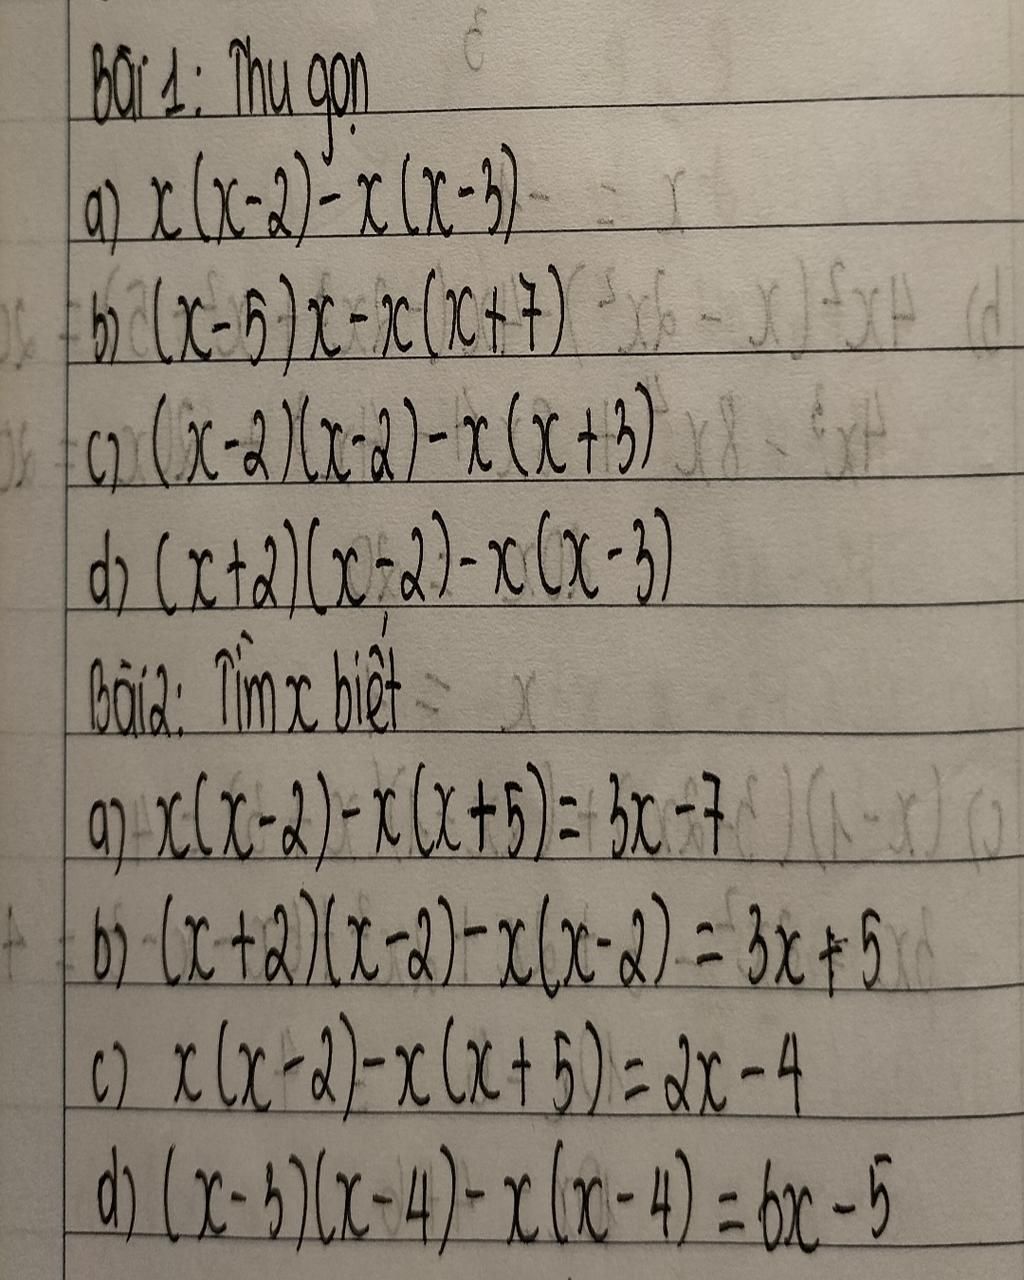 Bài 1: Thu gọn
a) x(x-2)-x(x-3)
b) (x-5)x-x(x+7)
c) (x-2)(x-2)-x(x+3)
d) (x+2)(x-2)-x(x-3)
Bài 2: Tìm x biết
a) x(x-2)-x(x+5)=3x-7
b) (x+2)(x-2)-x(x-2)=3x+5
c) x(x-2)-x(x+5)=2x-4
d) (x-3)(x-4)-x(x-4)=6x-5